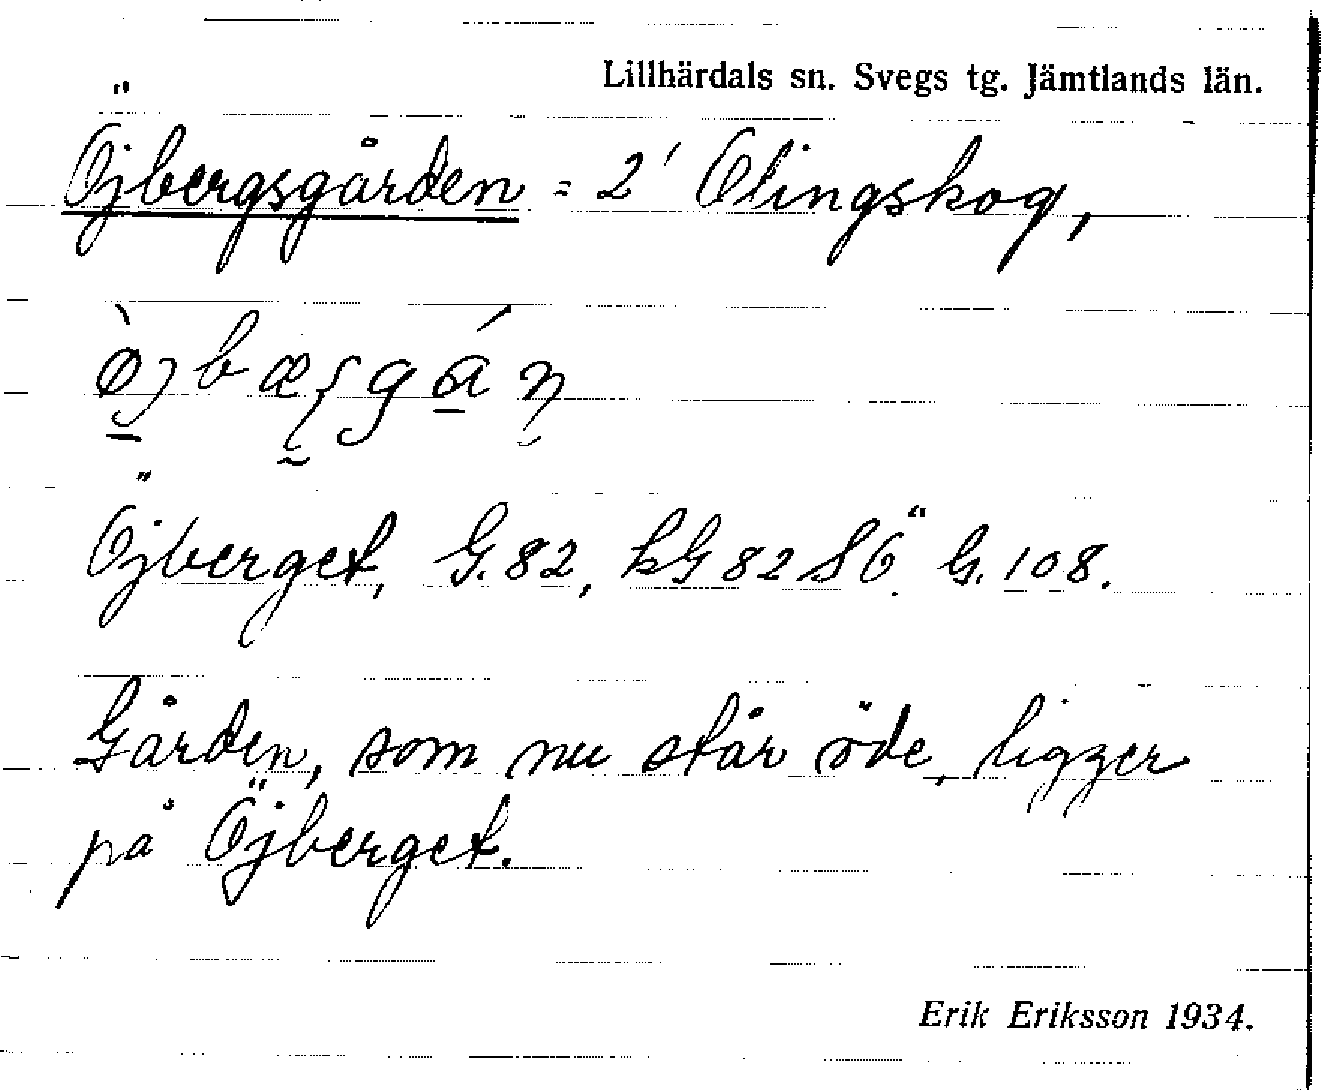 Lillhärdals sn. Svegs tg. Jämtlands län.
Öjbergsgården = 2' Olingskog,
Öjberget, G. 82, kG 82 SÖ. G. 108.
Gården, som nu står öde, ligger
på Öjberget.
Erik Eriksson 1934.